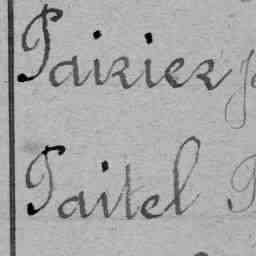 Pairier
Paitel